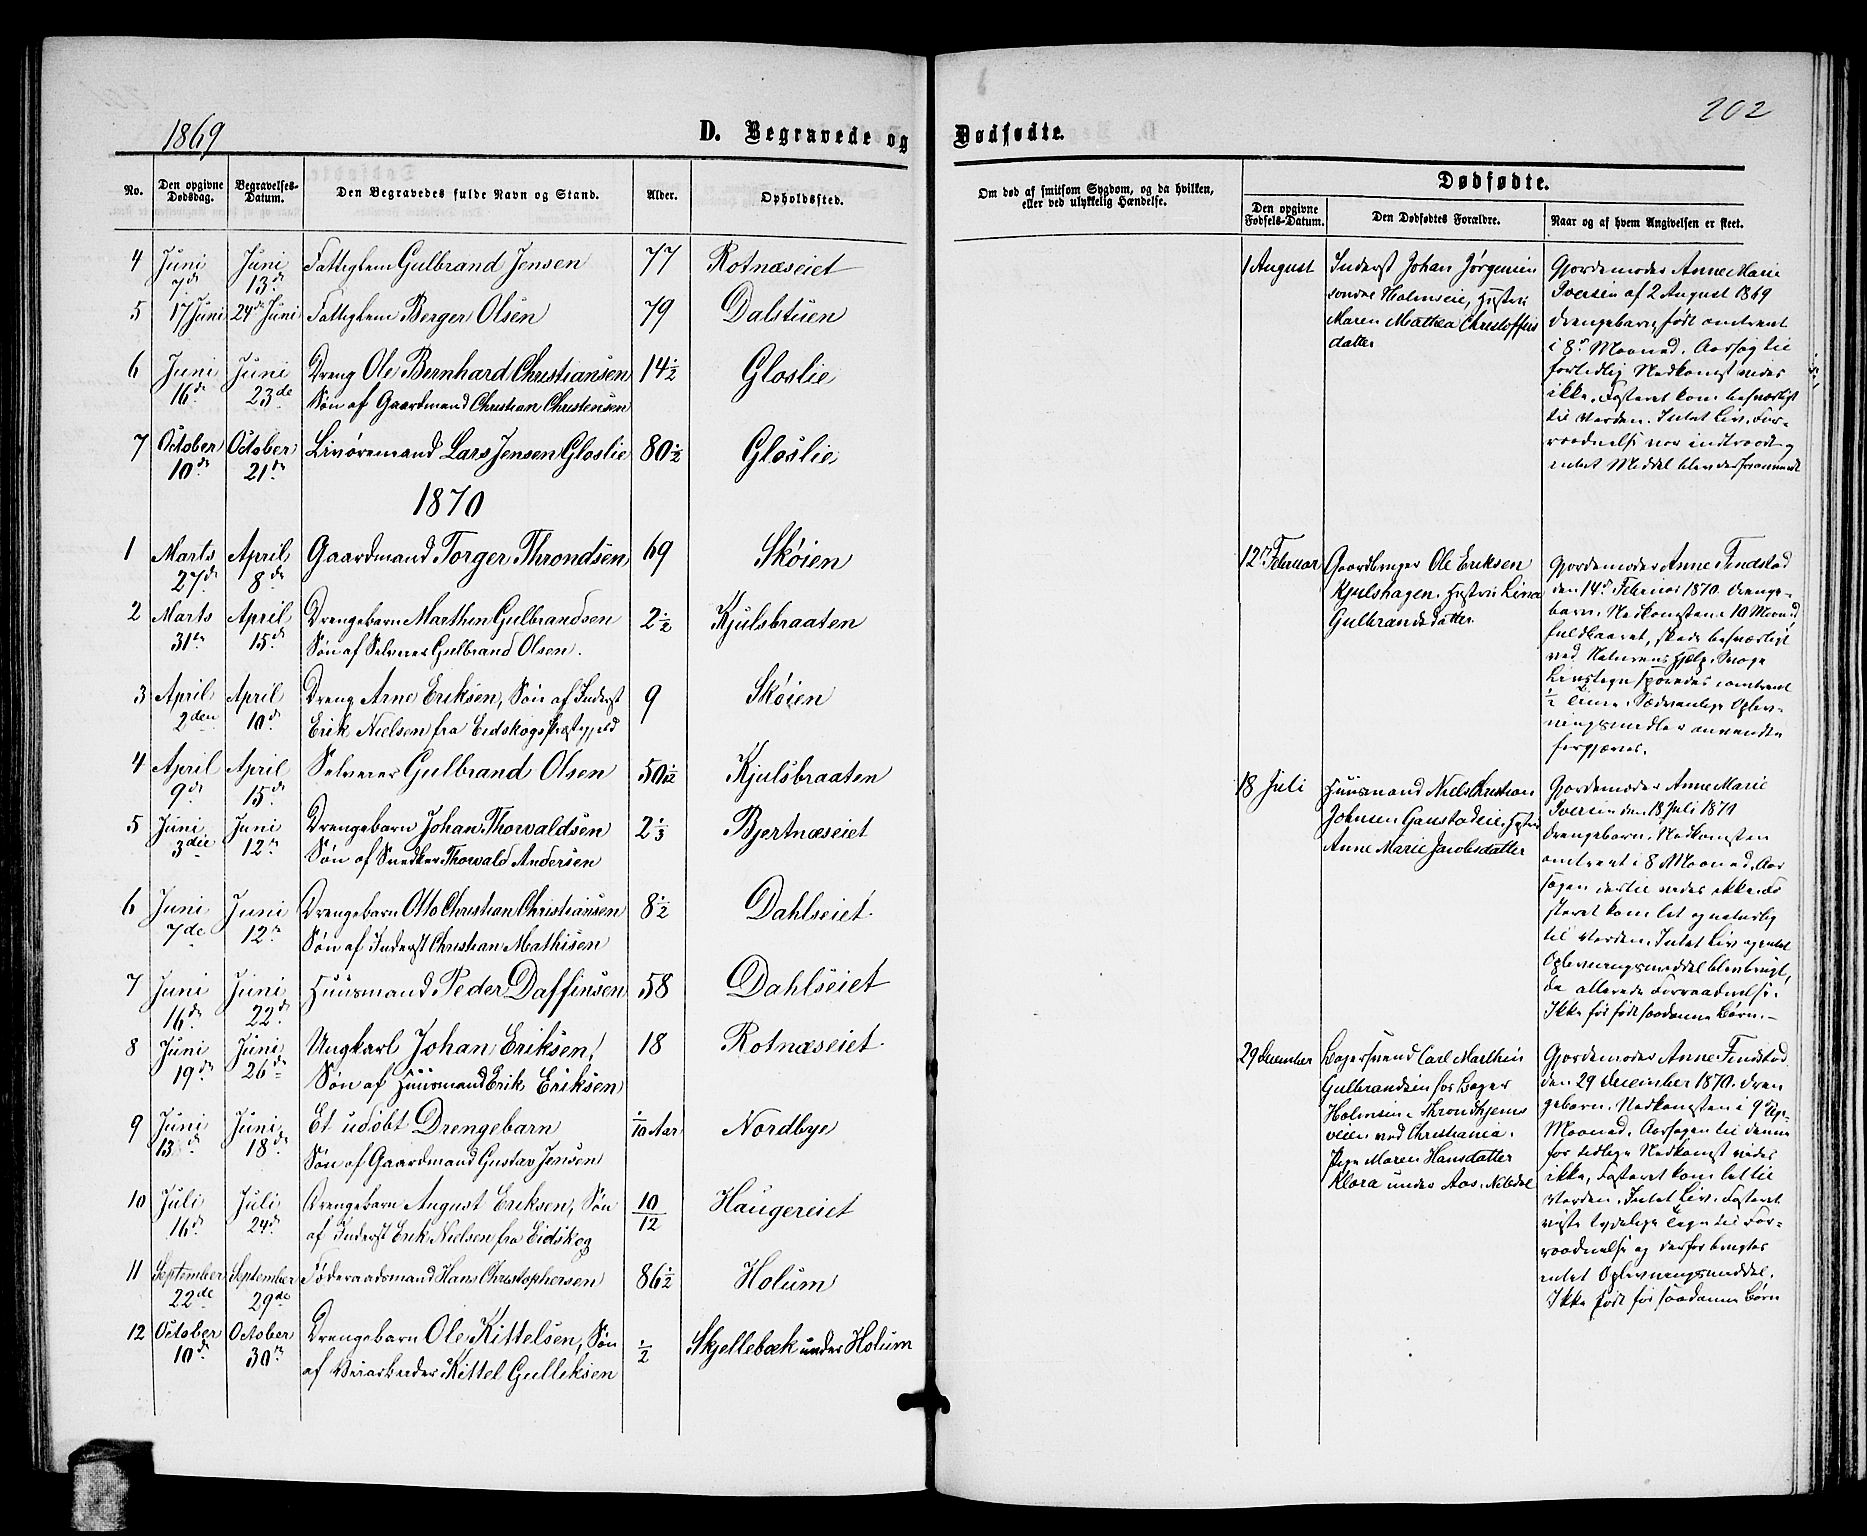 1869
D. Begravede og
No.
Den opgivne Dødsdag.
Begravelses-Datum.
Den Begravedes fulde Navn og Stand.
Alder.
Opholdssted.
4 Juni 7de Juni 13de Fattiglem Gulbrand Jensen 77 Rotnæseiet
5 17 Juni 24de Juni Fattiglem Berger Olsen 79 Dalstuen
6 Juni 16de Juni 23de Dreng Ole Bernhard Christiansen 14½ Gloslie
Søn af Gaardmand Christian Christensen
7 October 10de October 21de Livøremand Lars Jensen Gloslie 80½ Gloslie
1870
1 Marts 27de April 8de Gaardmand Torger Throndsen 69 Skøien
2 Marts 31te April 15de Drengebarn Marthin Gulbrandsen 2½ Kjulsbraaten
Søn af Selveier Gulbrand Olsen.
3 April 2den April 10de Dreng Arne Eriksen, Søn af Inderst 9 Skøien
Erik Nielsen fra Eidskogs Præstegjeld
4 April 9de April 15de Selveier Gulbrand Olsen 50½ Kjulsbraaten
5 Juni 3die Juni 12te Drengebarn Johan Thorvaldsen 2⅓ Bjertnæseiet
Søn af Snedker Thorvald Andersen
6 Juni 7de Juni 12te Drengebarn Otto Christian Christiansen 8½ Dahlseiet
Søn af Inderst Christian Mathisen
7 Juni 16de Juni 22de Huusmand Peder Daffinsen 58 Dahlseiet
8 Juni 19de Juni 26de Ungkarl Johan Eriksen, 18 Rotnæseiet
Søn af Huusmand Erik Eriksen
9 Juni 13de Juni 18de Et udøbt Drengebarn 1/10 Aar Nordbye
Søn af Gaardmand Gustav Jensen
10 Juli 16de Juli 24de Drengebarn August Eriksen, Søn 10/12 Haugereiet
af Inderst Erik Nielsen fra Eidskog
11 September 22de September 29de Føderaadsmand Hans Christophersen 86½ Holum
12 October 10de October 30te Drengebarn Ole Kittelsen, Søn ½ Skjellebæk under Holum
af Veiarbeider Kittel Gulliksen
202
Dødfødte.
Om død af smitsom Sygdom, og da hvilken,
eller ved ulykkelig Hændelse.
Dødfødte.
Den opgivne Fødsels-Datum.
Den Dødfødtes Forældre.
Naar og af hvem Angivelsen er skeet.
1 August
Inderst Johan Jørgensen
Holmseie, Hustru
Maren Mathea Christoffers
datter
Gjordemoder Anne Marie
Iversen af 2 August 1869
Drengebarn, født omtrent
i 8de Maaned. Aarsag til
fortidlig Nedkomst vides
ikke. Fosteret kom besværligt
til Verden. Intet Liv. For-
raadnelse var indtraadt og
intet Middel blev derfor anvendt
12te Februar
Gaardbruger Ole Eriksen
Kjulshagen. Hustru Lina
Gulbrandsdatter
Gjordemoder Anne Findstad
den 14de Februar 1870. Drenge-
barn. Nedkomsten i 10 Maaned,
fuldbaaret, skede besværligt
ved Naturens Hjelp. Svage
Livstegn sporedes omtrent
½ Time. Sædvanlige Opliv-
ningsmidler anvendte
forgjæves.
18 Juli
Huusmand Niels Kristian
Johnsen Ganstadeie, Hustru
Anne Marie Jacobsdatter
Gjordemoder Anne Marie
Iversen den 18 Juli 1870
Drengebarn. Nedkomsten
omtrent i 8 Maaned. Aar
sagen dertil vides ikke. Fo
steret kom let og naturlig
til Verden. Intet Liv og intet
Oplivningsmiddel blev brugt,
da allerede Forraadnelse.
Ikke før født saadanne Børn.-
29 December
Bagersvend Carl Marthin
Gulbrandsen hos Bager
Holmsen i Throndhjems
veien ved Christiania.
Pige Maren Hansdatter
Klara under Aas. Nitedal
Gjordemoder Anne Findstad
den 29 December 1870. Dren
gebarn. Nedkomsten i 9de
Maaned. Aarsagen til denne
for tidlige Nedkomst vides
ikke, Fosteret kom let til
Verden. Intet Liv. Fosteret
viste tydelige Tegn til For-
raadnelse og derfor brugtes
intet Oplivningsmiddel.
Ikke født før saadanne Børn